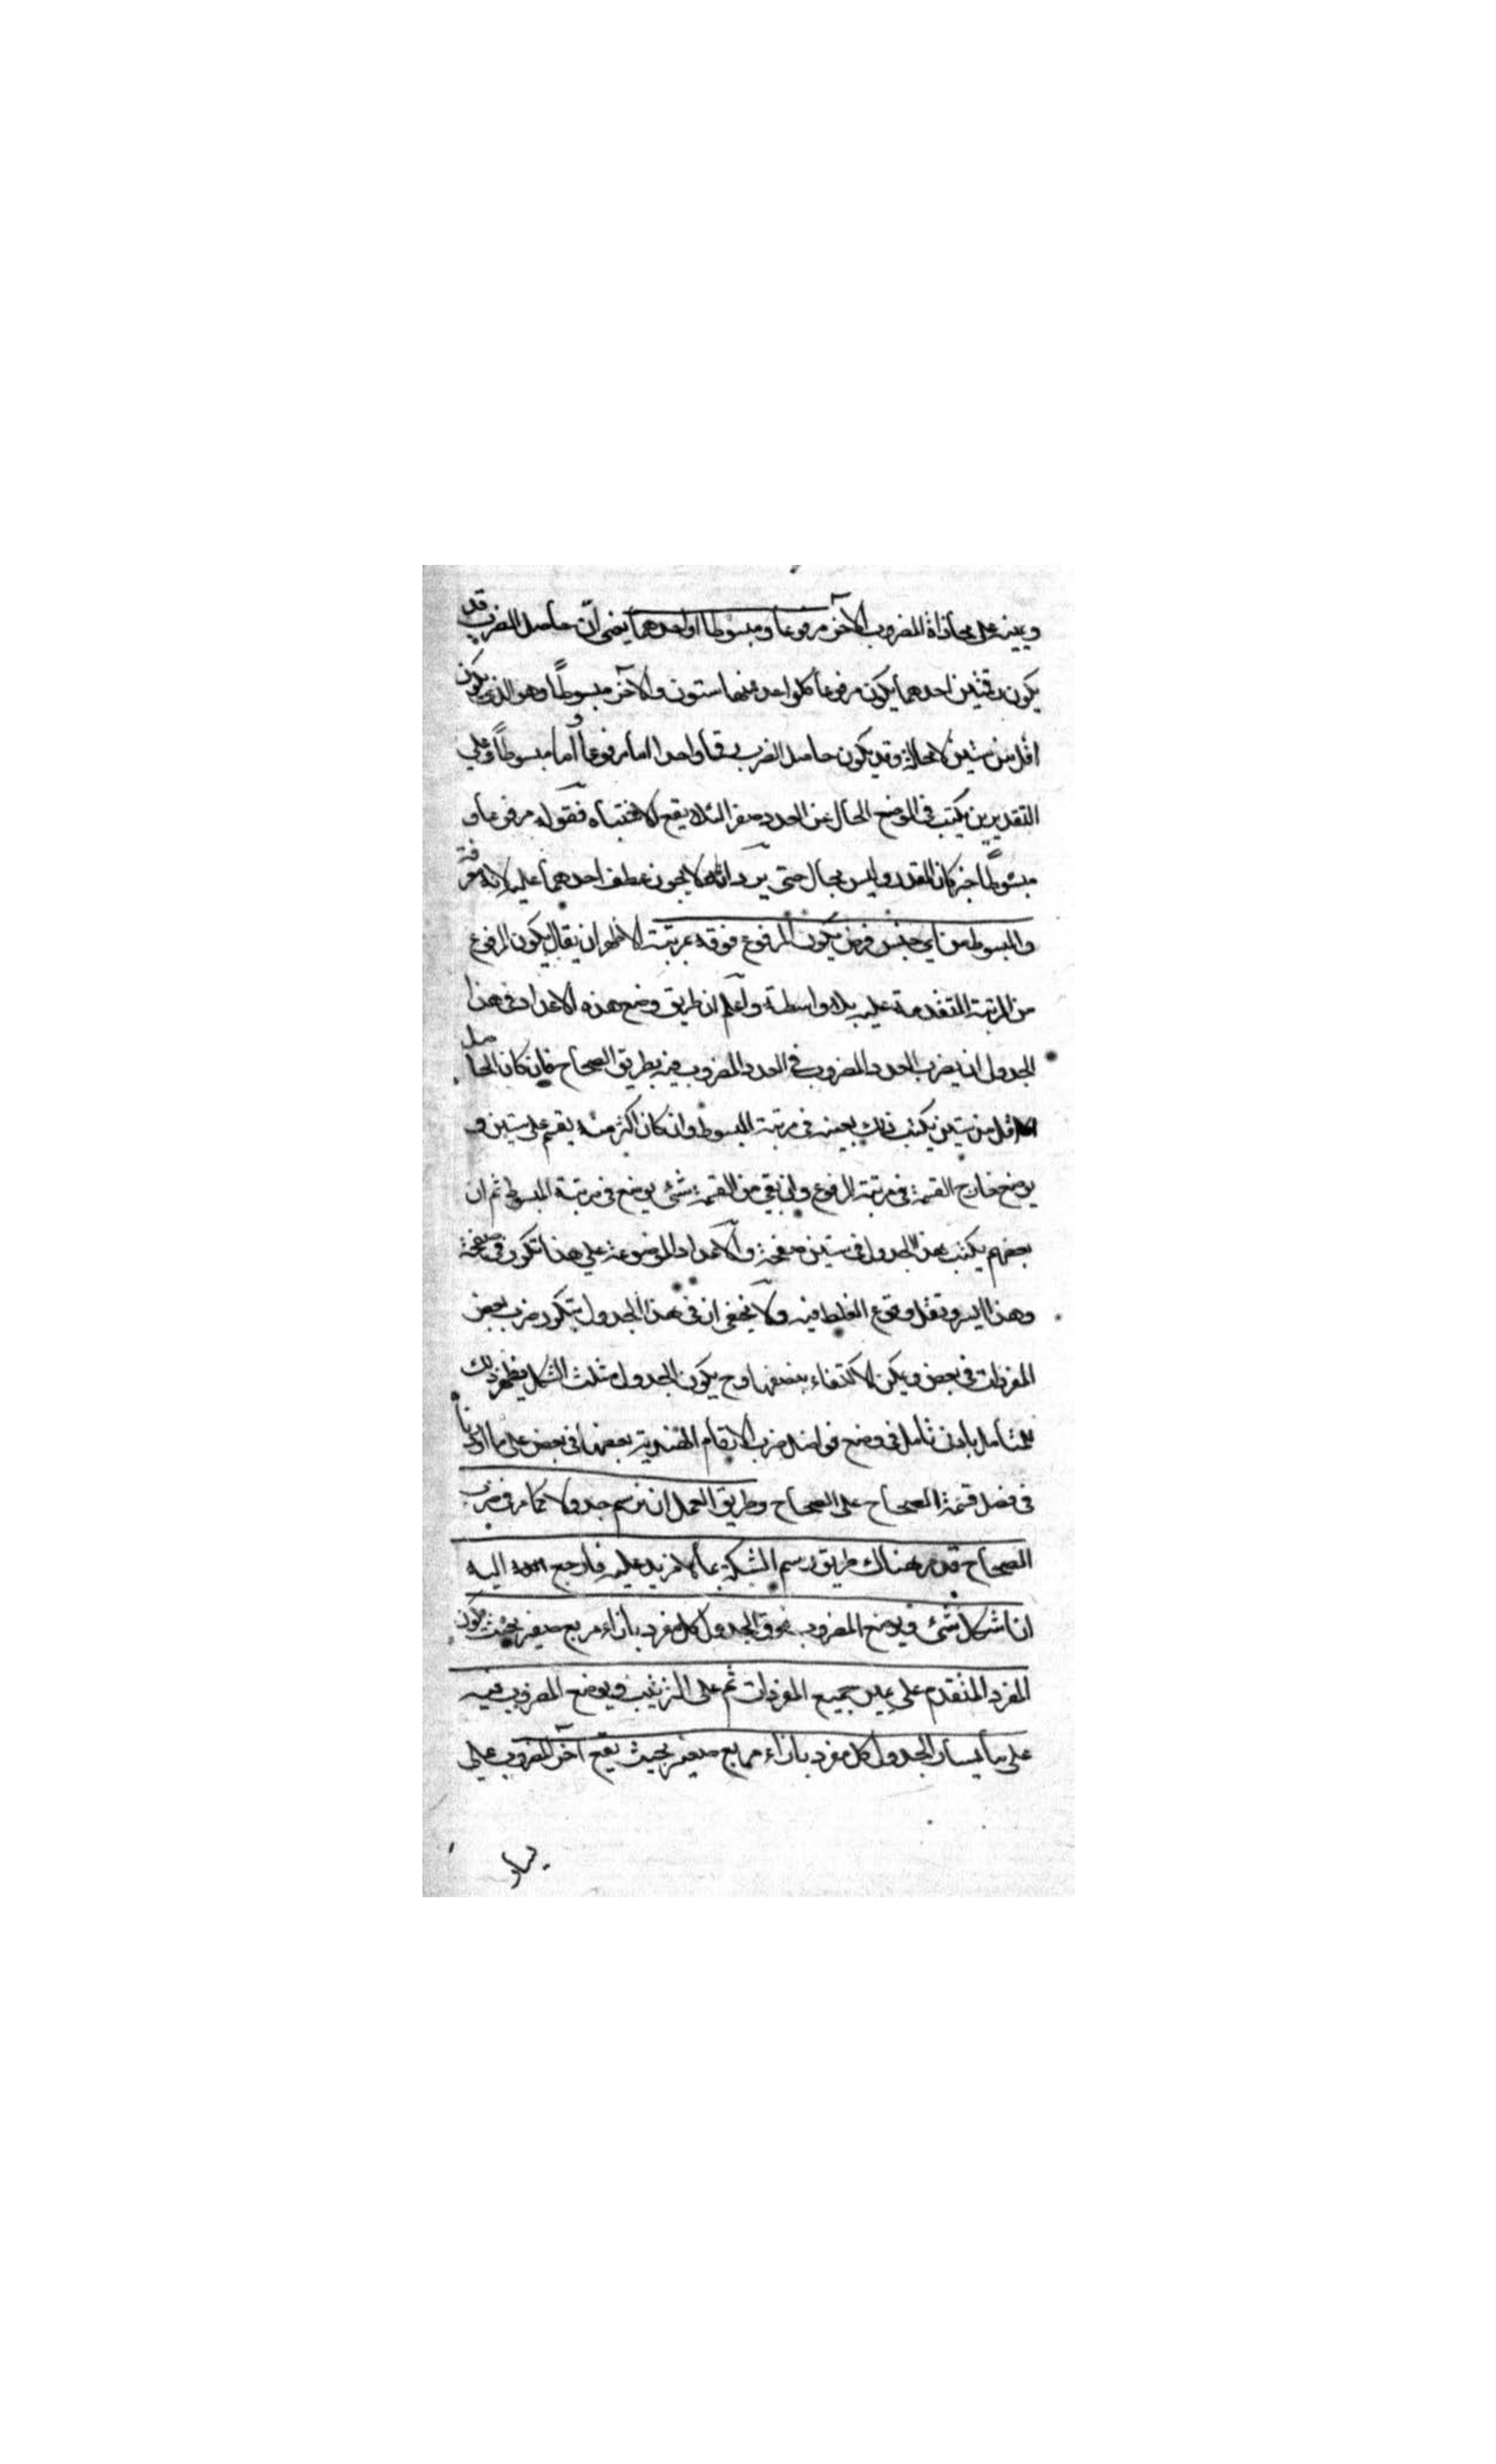 وبينه على محاذاة المضروب الآخر مرفوعا ومبسوطا او احدهما يعنى أن حاصل الضرب قد
يكون رقمين احدهما يكون مرفوعا كل واحد منها ستون والآخر مبسوطاً وهو الذى يكون
اقل من ستين لا محالة وقد يكون حاصل الضرب رقما واحدا اما مرفوعا واما مبسوطاً وعلى
التقديرين يكتب فى الموضع الخال عن العدد صفر الئلا يقع الاشتباه فقوله مرفوعا و
مبسوطاً خبر كان المقدر وليس بحال حتى يرد انه لا يجوز عطف احدهما عليه لانه معرفة
والمبسوط من اى جنس فرض يكون المرفوع فوقه بمرتبة الاظهر ان يقال يكون المرفوع
من المرتبة المتقدمة عليه بلا واسطة واعلم ان طريق وضع هذه الاعداد فى هذا
الجدول ان يضرب العدد المضروب فى العدد المضروب فيه بطريق الصحاح فان كان الحاصل
اقل من ستين يكتب ذلك بعينه فى مرتبة المبسوط وان كان اكثر منه يقسم على ستين و
يوضع خارج القسمة فى مرتبة المرفوع وان بقى من القسمة شئ يوضع فى مرتبة المبسوط ثم ان
بعضهم يكتب هذا الجدول فى ستين صفحة والاعداد الموضوعة على هذا تكون فى صفحة
وهذا ايسر وتقل وقوع الغلط فيه ولا يخفى ان فى هذا الجدول يتكرر ضرب بعض
المفردات فى بعض ويمكن الاكتفاء بنصفها وح يكون الجدول مثلث الشكل يظهر ذلك
للمتأمل بادنى تأمل فى وضع فواضل ضرب الارقام الهندية بعضها فى بعض على ما اوردنا
فى فصل قسمة الصحاح على الصحاح وطريق العمل ان نرسم جدولا كما مر فى ضرب
الصحاح قد مر هناك طريق رسم الشبكة بما لا مزيد عليه فارجع اليه
ان اشكل شئ ويوضع المضروب فوق الجدول كل مفرد بازاء مربع صغير بحيث يكون
المفرد المتقدم على يمين جميع المفردات ثم على الترتيب ويوضع المضروب فيه
على يسار الجدول كل مفرد بازاء مربع صغير بحيث يقع آخر المضروب على